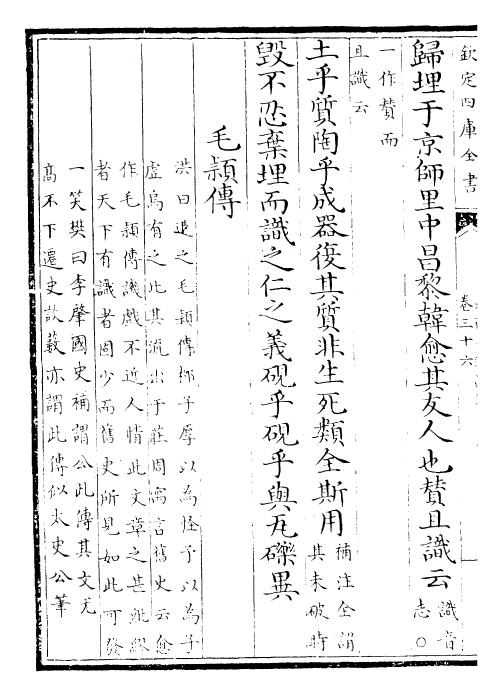 欽定四庫全書
卷三十六
歸埋于京師里中昌黎韓愈其友人也賛且識云識音志〇
一作賛而
且識云
土乎質陶乎成器復其質非生死類全斯用補注全謂其未破時
毀不忍棄埋而識之仁之義硯乎硯乎與瓦礫異
毛穎傳
洪曰退之毛穎傳柳子厚以為怪予以為子
虛烏有之比其流出于莊周寓言舊史云愈
作毛穎傳譏戲不近人情此文章之甚紕繆
者天下有識者固少而舊史所見如此可發
一笑樊曰李肇國史補謂公此傳其文尤
高不下遷史談藪亦謂此傳似太史公筆